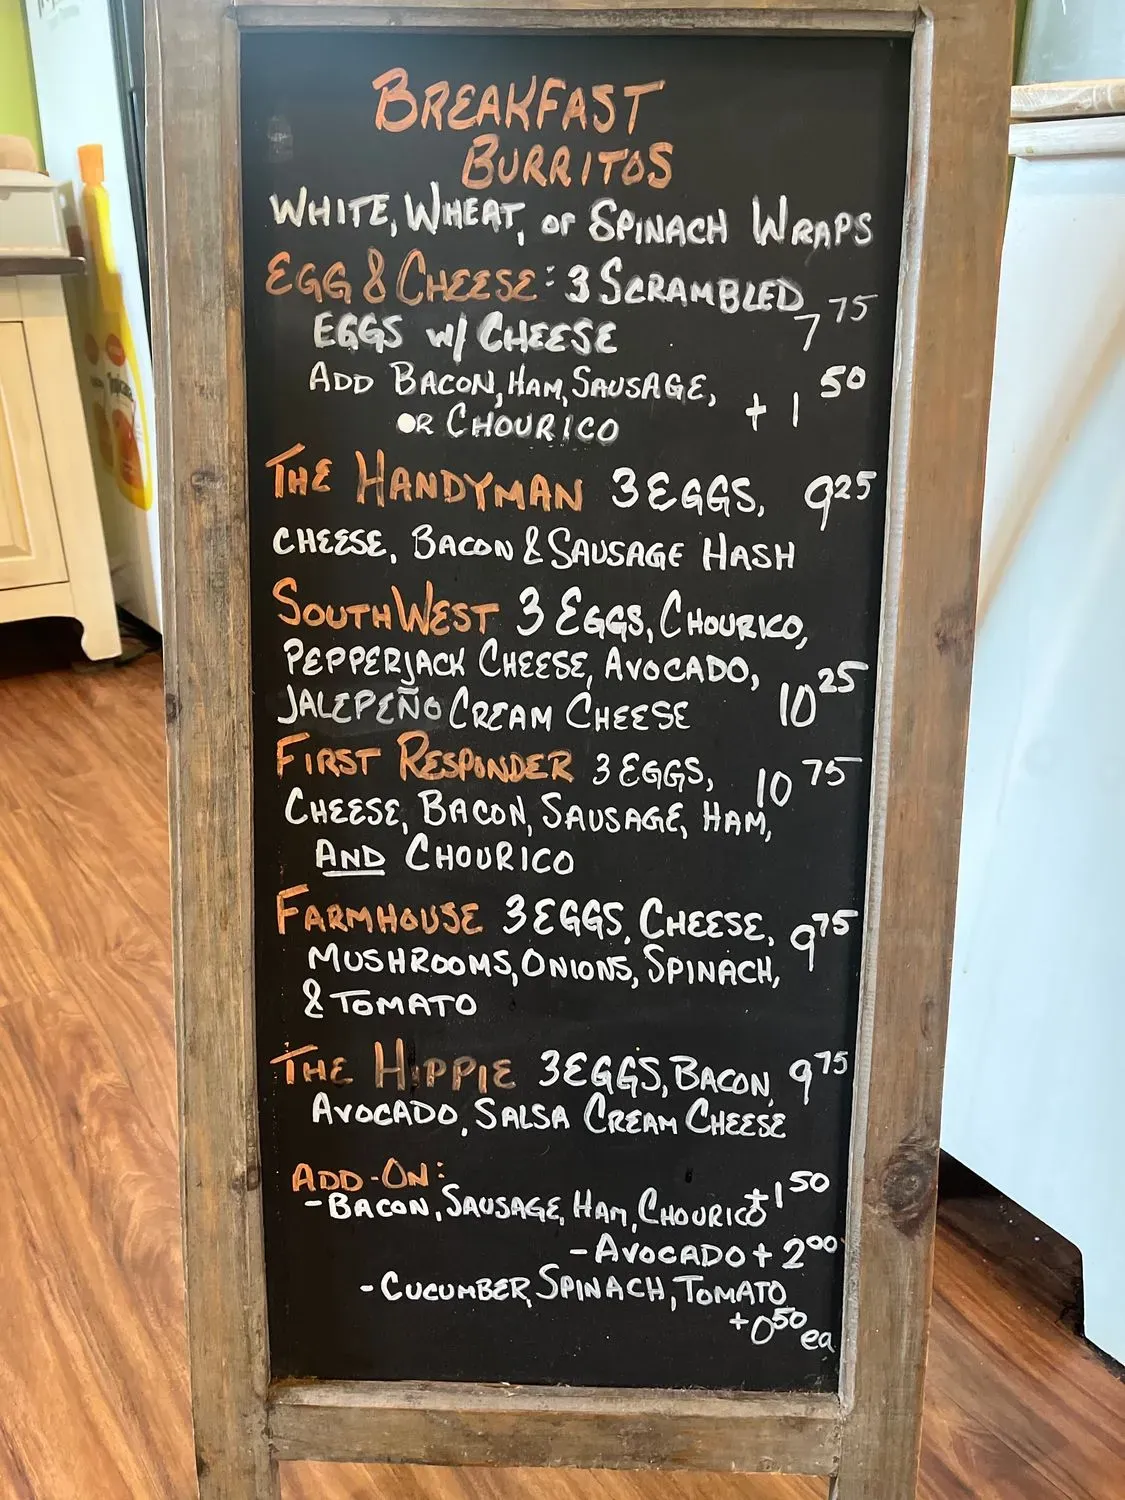 BREAKFAST
BURRITOS
WHITE, WHEAT, or SPINACH WRAPS
EGG & CHEESE: 3 SCRAMBLED
EGGS w/ CHEESE 7 75
ADD BACON, HAM, SAUSAGE,
OR CHOURICO + 1 50
THE HANDYMAN 3 EGGS, 9 25
CHEESE, BACON & SAUSAGE HASH
SOUTHWEST 3 EGGS, CHOURICO,
PEPPERJACK CHEESE, AVOCADO,
JALEPEÑO CREAM CHEESE 10 25
FIRST RESPONDER 3 EGGS, 10 75
CHEESE, BACON, SAUSAGE, HAM,
AND CHOURICO
FARMHOUSE 3 EGGS, CHEESE, 9 75
MUSHROOMS, ONIONS, SPINACH,
& TOMATO
THE HIPPIE 3 EGGS, BACON, 9 75
AVOCADO, SALSA CREAM CHEESE
ADD-ON:
- BACON, SAUSAGE, HAM, CHOURICO +1 50
- AVOCADO + 2 00
- CUCUMBER, SPINACH, TOMATO
+0 50 ea